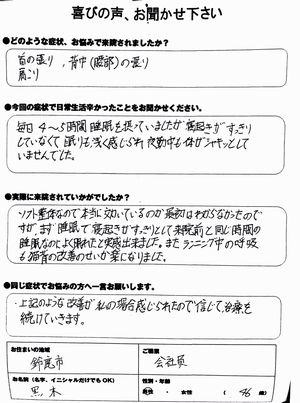 喜びの声、お聞かせ下さい
●どのような症状、お悩みで来院されましたか?
首の張り、背中(腰部)の張り
肩こり
●今回の症状で日常生活辛かったことをお聞かせください。
毎日4～5時間睡眠を摂っていましたが寝起きがすっきり
していなくて眠りも浅く感じられ夜勤中も体がシャキッとして
いませんでした。
●実際に来院されていかがでしたか?
ソフト整体なので本当に効いているのか最初はわからなかったので
すが、まず睡眠で寝起きがすっきりとして来院前と同じ時間の
睡眠なのによく眠れたと実感出来ました。またランニング中の呼吸
も猫背の改善のせいか楽になりました。
●同じ症状でお悩みの方へ一言お願いします。
上記のような改善が私の場合感じられたので信じて治療を
続けていきます。
お住まいの地域
鈴鹿市
ご職業
会社員
お名前(名字、イニシャルだけでもOK)
黒木
性別・年齢
男性・女性(46歳)